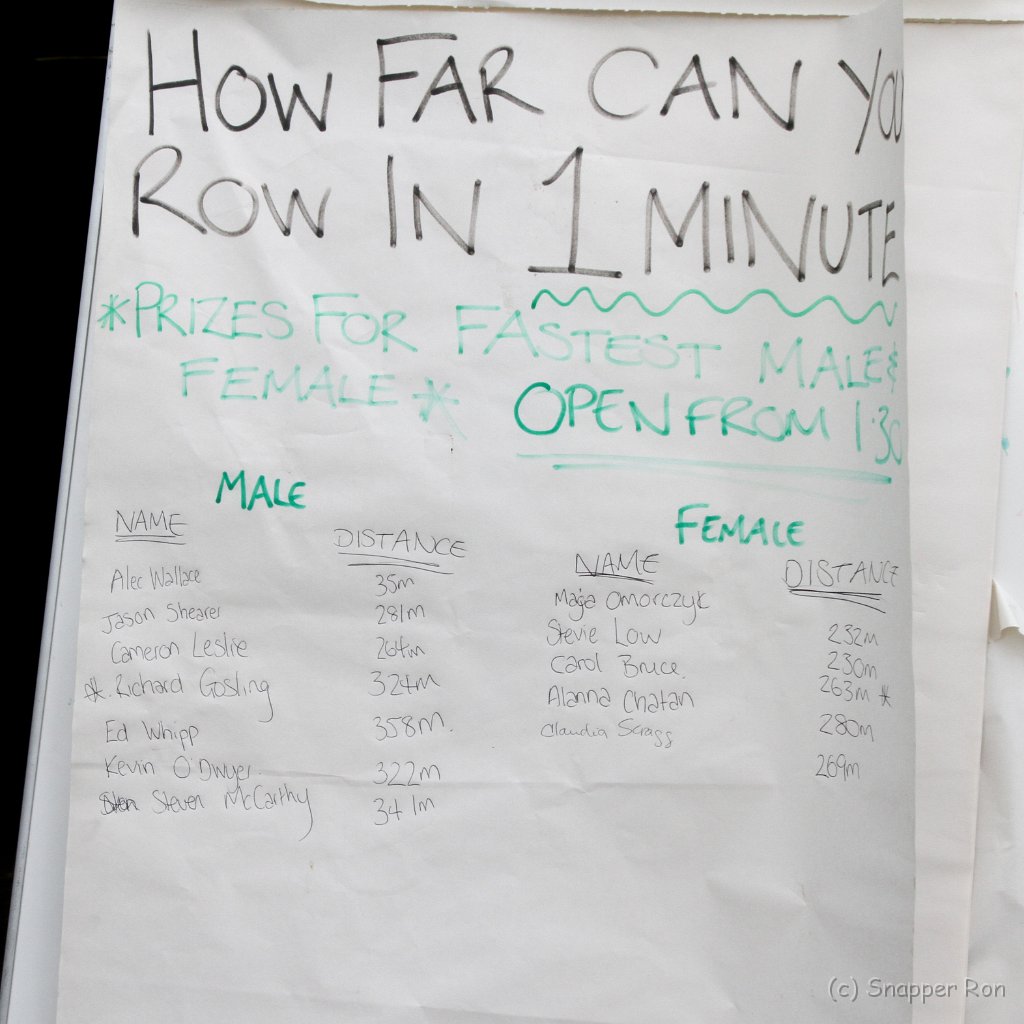 HOW FAR CAN YOU
ROW IN 1 MINUTE
*PRIZES FOR FASTEST MALE &
FEMALE *
OPEN FROM 1:30
MALE
NAME DISTANCE
Alec Wallace 35m
Jason Shearer 281m
Cameron Leslie 264m
*. Richard Gosling 324m
Ed Whipp 358m.
Kevin O'Dwyer. 322m
Steven McCarthy 341m
FEMALE
NAME DISTANCE
Maja Omorczyk 232m
Stevie Low 230m
Carol Bruce. 263m *
Alanna Chatan 280m
Claudia Scragg 269m
(c) Snapper Ron